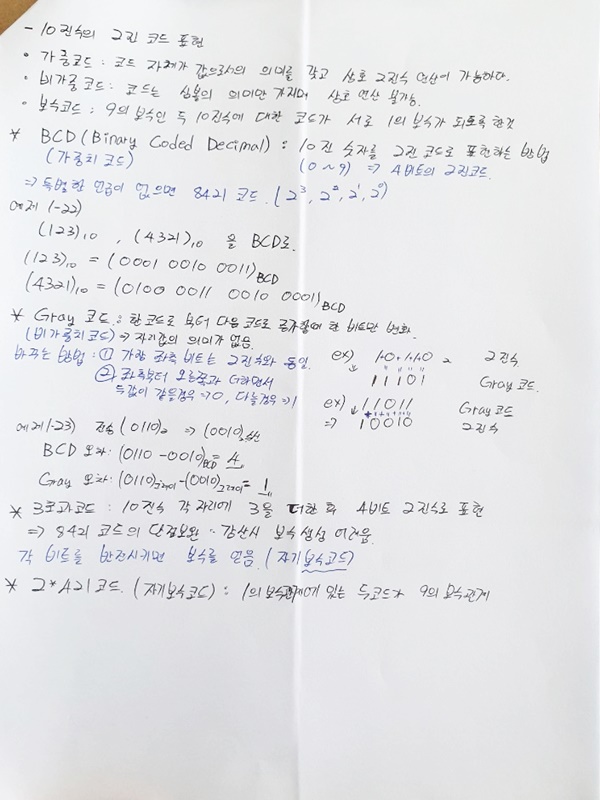 - 10진수의 2진 코드 표현
• 가중코드 : 코드 자체가 값으로서의 의미를 갖고 상호 2진수 연산이 가능하다.
• 비가중 코드 : 코드는 심볼의 의미만 가지며 상호 연산 불가능.
• 보수코드 : 9의 보수인 두 10진수에 대한 코드가 서로 1의 보수가 되도록 한것
* BCD (Binary Coded Decimal) : 10진 숫자를 2진 코드로 표현하는 방법
(가중치 코드) (0 ~ 9) => 4비트의 2진코드.
=> 특별한 언급이 없으면 8421 코드. (2³, 2², 2¹, 2⁰)
예제 1-22)
(123)₁₀ , (4321)₁₀ 을 BCD로.
(123)₁₀ = (0001 0010 0011)BCD
(4321)₁₀ = (0100 0011 0010 0001)BCD
* Gray 코드 : 한 코드로 부터 다음 코드로 증가할때 한 비트만 변화.
(비가중치코드) => 자리값의 의미가 없음.
바꾸는 방법 : ① 가장 좌측 비트는 2진수와 동일.
② 좌측부터 오른쪽과 더하면서
두값이 같을경우 => 0, 다를경우 => 1
ex) 1+0+1+1+0 2진수
↓ 11101 Gray 코드.
ex) ↓11011 Gray 코드
=> 10010 2진수
예제 1-23) 전송 (0110)₂ => (0010)₂수신
BCD 오차: (0110 - 0010)BCD = 4
Gray 오차: (0110)그레이 - (0010)그레이 = 1
* 3초과코드 : 10진수 각 자리에 3을 더한 후 4비트 2진수로 표현
=> 8421 코드의 단점보완 : 감산시 보수생성 어려움.
각 비트를 반전시키면 보수를 얻음. (자기보수코드)
* 2*421 코드. (자기보수코드) : 1의 보수관계에 있는 두코드가 9의 보수관계